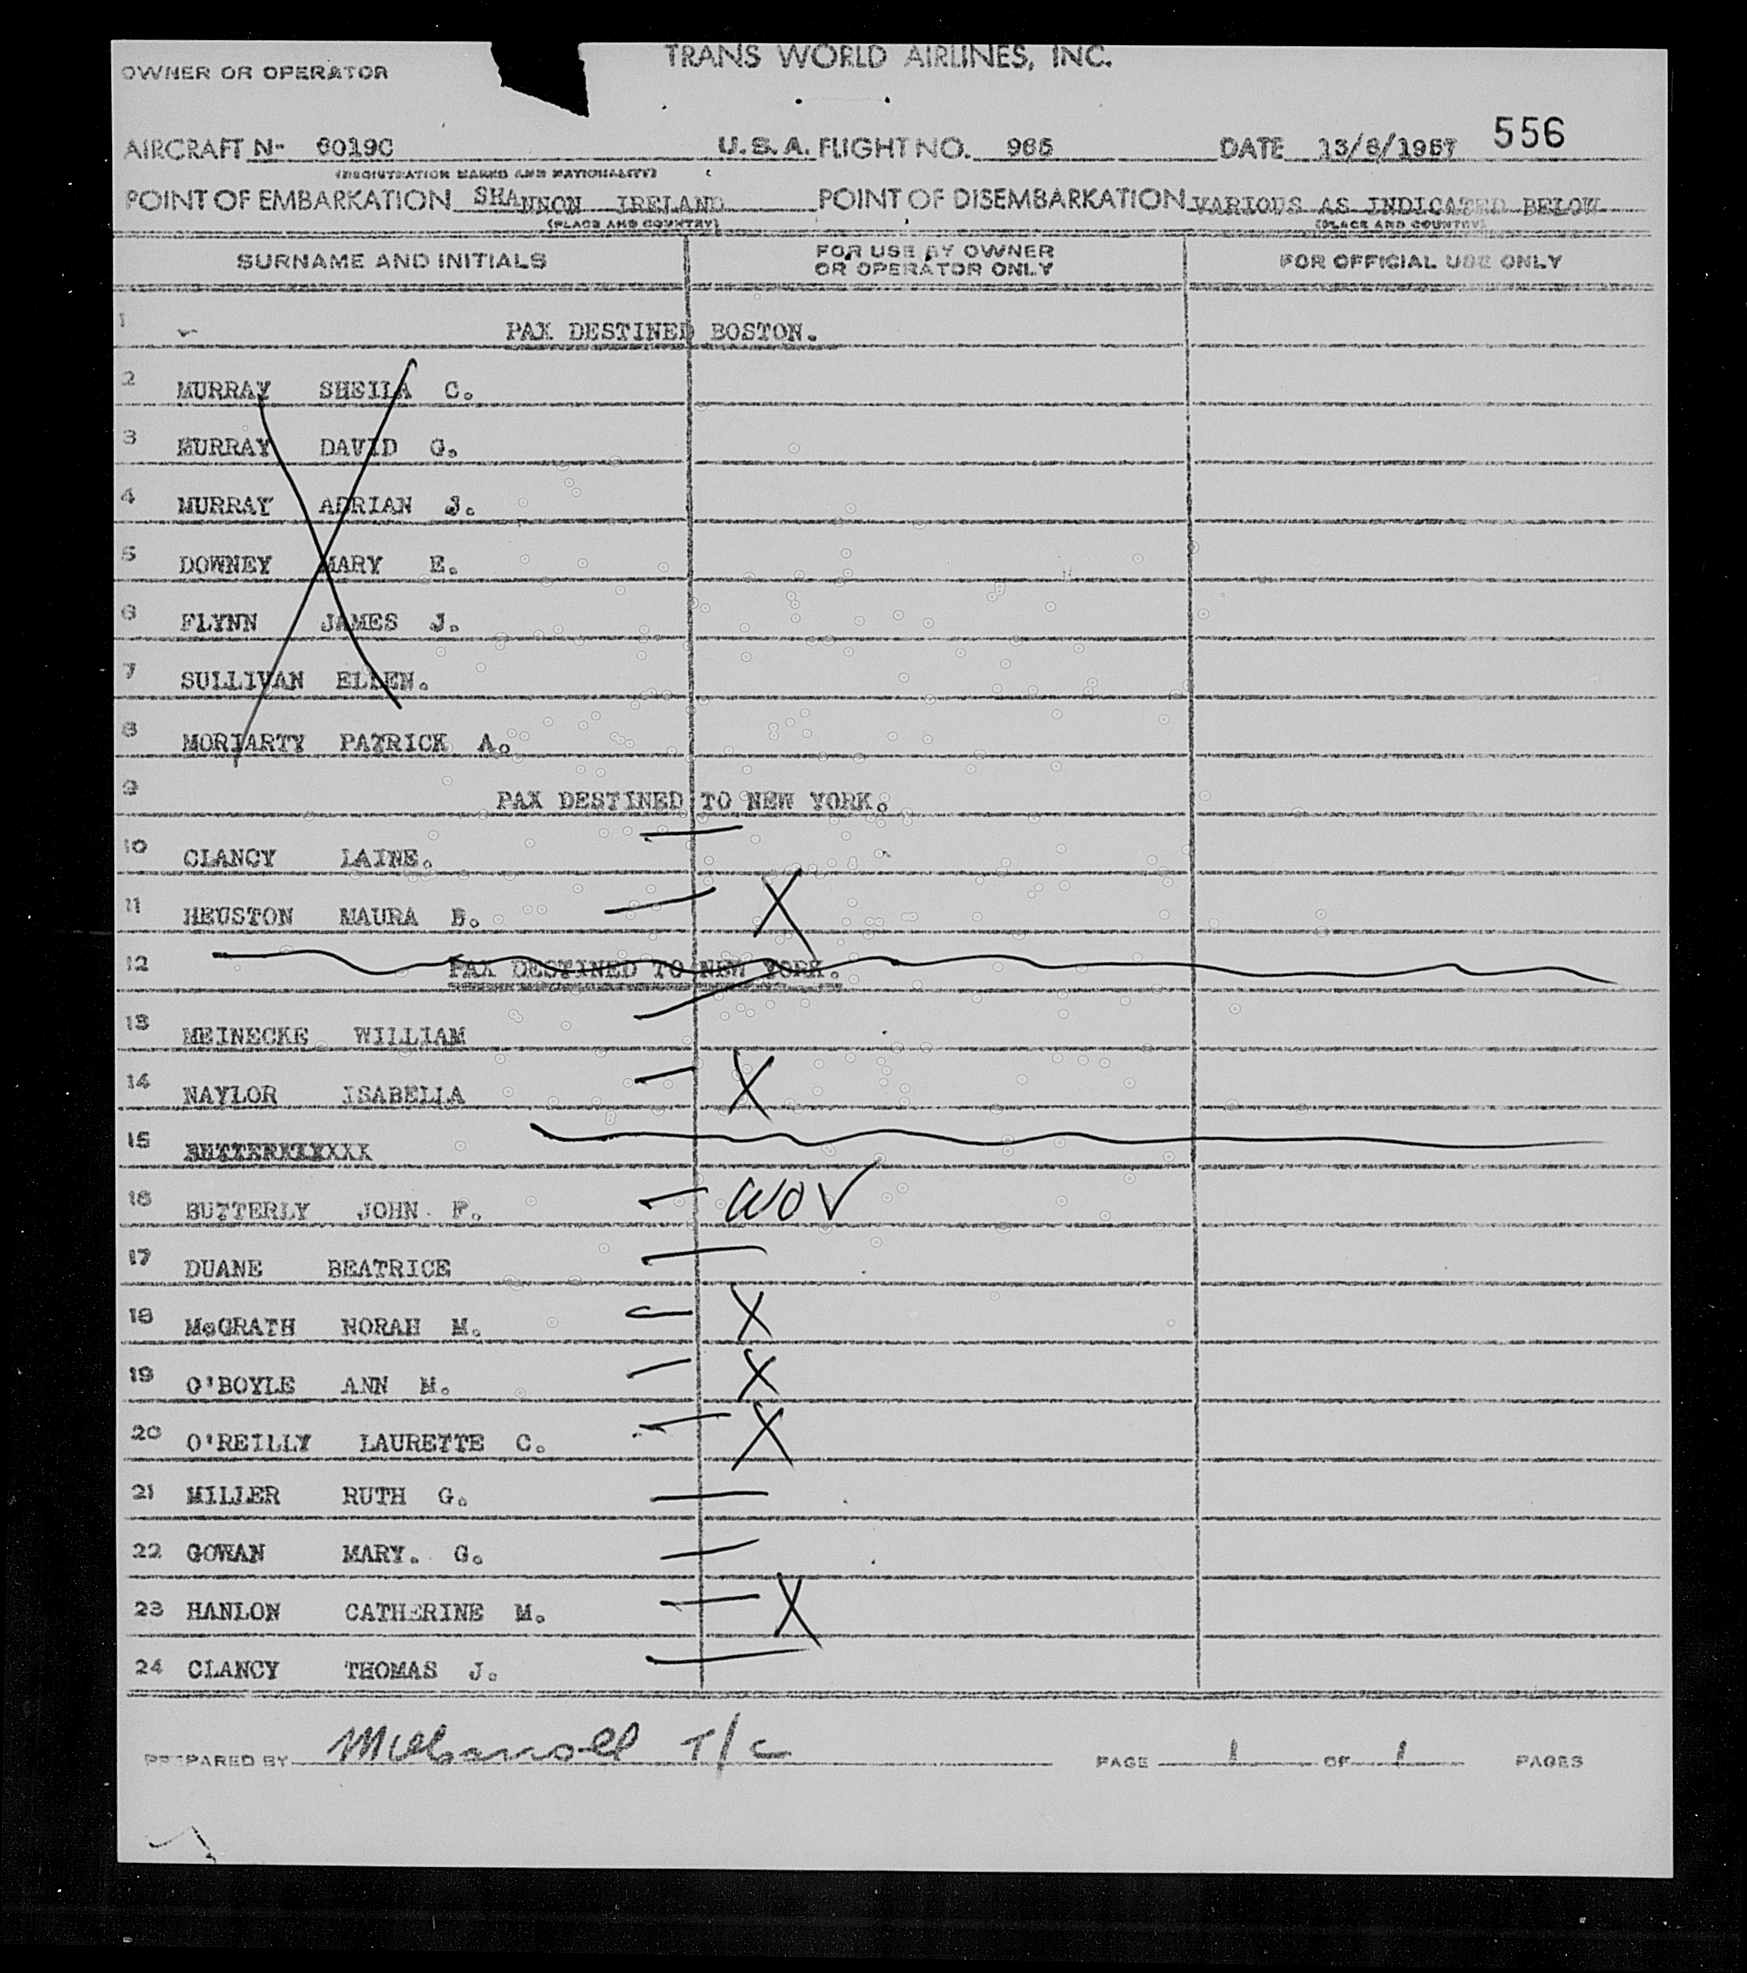 TRANS WORLD AIRLINES, INC.
OWNER OR OPERATOR
AIRCRAFT N- 6019C U.S.A. FLIGHT NO. 965 DATE 13/6/1957 556
(REGISTRATION MARKS AND NATIONALITY)
POINT OF EMBARKATION SHANNON IRELAND POINT OF DISEMBARKATION VARIOUS AS INDICATED BELOW
(PLACE AND COUNTRY) (PLACE AND COUNTRY)
SURNAME AND INITIALS FOR USE BY OWNER OR OPERATOR ONLY FOR OFFICIAL USE ONLY
1 PAX DESTINED BOSTON.
2 MURRAY SHEILA C.
3 MURRAY DAVID G.
4 MURRAY ADRIAN J.
5 DOWNEY MARY E.
6 FLYNN JAMES J.
7 SULLIVAN ELLEN.
8 MORIARTY PATRICK A.
9 PAX DESTINED TO NEW YORK.
10 CLANCY LAINE.
11 HEUSTON MAURA B. X
12 PAX DESTINED TO NEW YORK.
13 MEINECKE WILLIAM
14 NAYLOR ISABELLA X
15
16 BUTTERLY JOHN F. WO ✓
17 DUANE BEATRICE
18 McGRATH NORAH M. X
19 O'BOYLE ANN M. X
20 O'REILLY LAURETTE C. X
21 MILLER RUTH G.
22 GOWAN MARY. G.
23 HANLON CATHERINE M. X
24 CLANCY THOMAS J.
PREPARED BY T/C PAGE 1 OF 1 PAGES